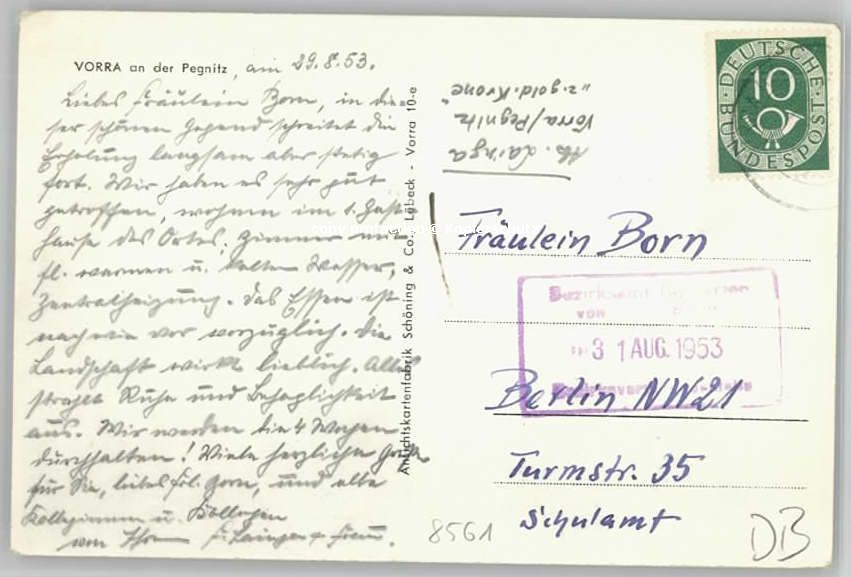 VORRA an der Pegnitz, am 29.8.53.
Liebes Fräulein Born, in die=
ser schönen Gegend schreitet die
Erholung langsam aber stetig
fort. Wir haben es sehr gut
getroffen, wohnen im 1. Gast-
hause des Ortes, Zimmer mit
fl. warmen u. kalten Wasser,
Zentralheizung. Das Essen ist
nach wie vor vorzüglich. Die
Landschaft wirkt lieblich. Alles
strahlt Ruhe und Behaglichkeit
aus. Wir werden die 4 Wochen
durchhalten! Viele herzliche Grüße
für Sie, liebes Frl. Born, und alle
Kolleginnen u. Kollegen
von Ihrem
Ansichtskartenfabrik Schöning & Co., Lübeck - Vorra 10-e
Vorra/Pegnitz
"z. gold. Krone"
DEUTSCHE
BUNDESPOST
10
Fräulein Born
VON
31 AUG. 1953
Berlin NW21
Turmstr. 35
Schulamt
8561
DB